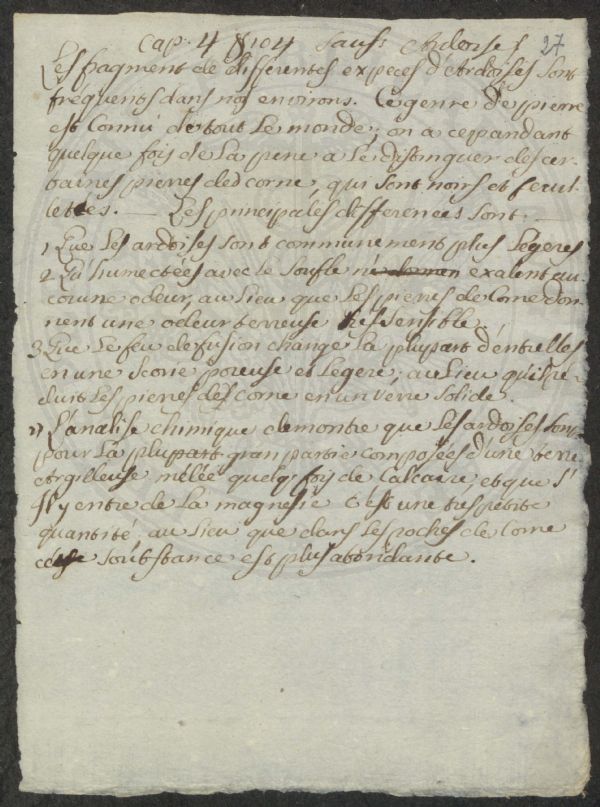 Cap. 4 § 104 Sauss: Ardoises 27
Les fragment de differentes especes d'Ardoises sont
frequents dans nos environs. Ce genre de pierre
est Connu de tout le monde; on a cepandant
quelque fois de la pene a le distinguer de cer-
taines pierres de corne, qui sont noirs et feuil-
letées. — Les principales differences sont. —
1 Que les ardoises sont communement plus legeres
2 Qu'humectées avec le soufle exalent au-
cune odeur, au lieu que les pierres de Corne don-
nent une odeur terreuse tres sensible.
3 Que le feu de fusion change la plupart d'entrelles
en une Scorie poreuse et legere, au lieu qu'il re-
duit les pierres des corne en un verre solide.
L'analise chimique demontre que les ardoises sont
pour la plupart gran partie composées d'une terre
Argilleuse mêlée quelq: fois de Calcaire, et que s'
Il y entre de la magnesie c'est une tres petite
quantité, au lieu que dans les roches de Corne
cette soubstance est plus abondante.